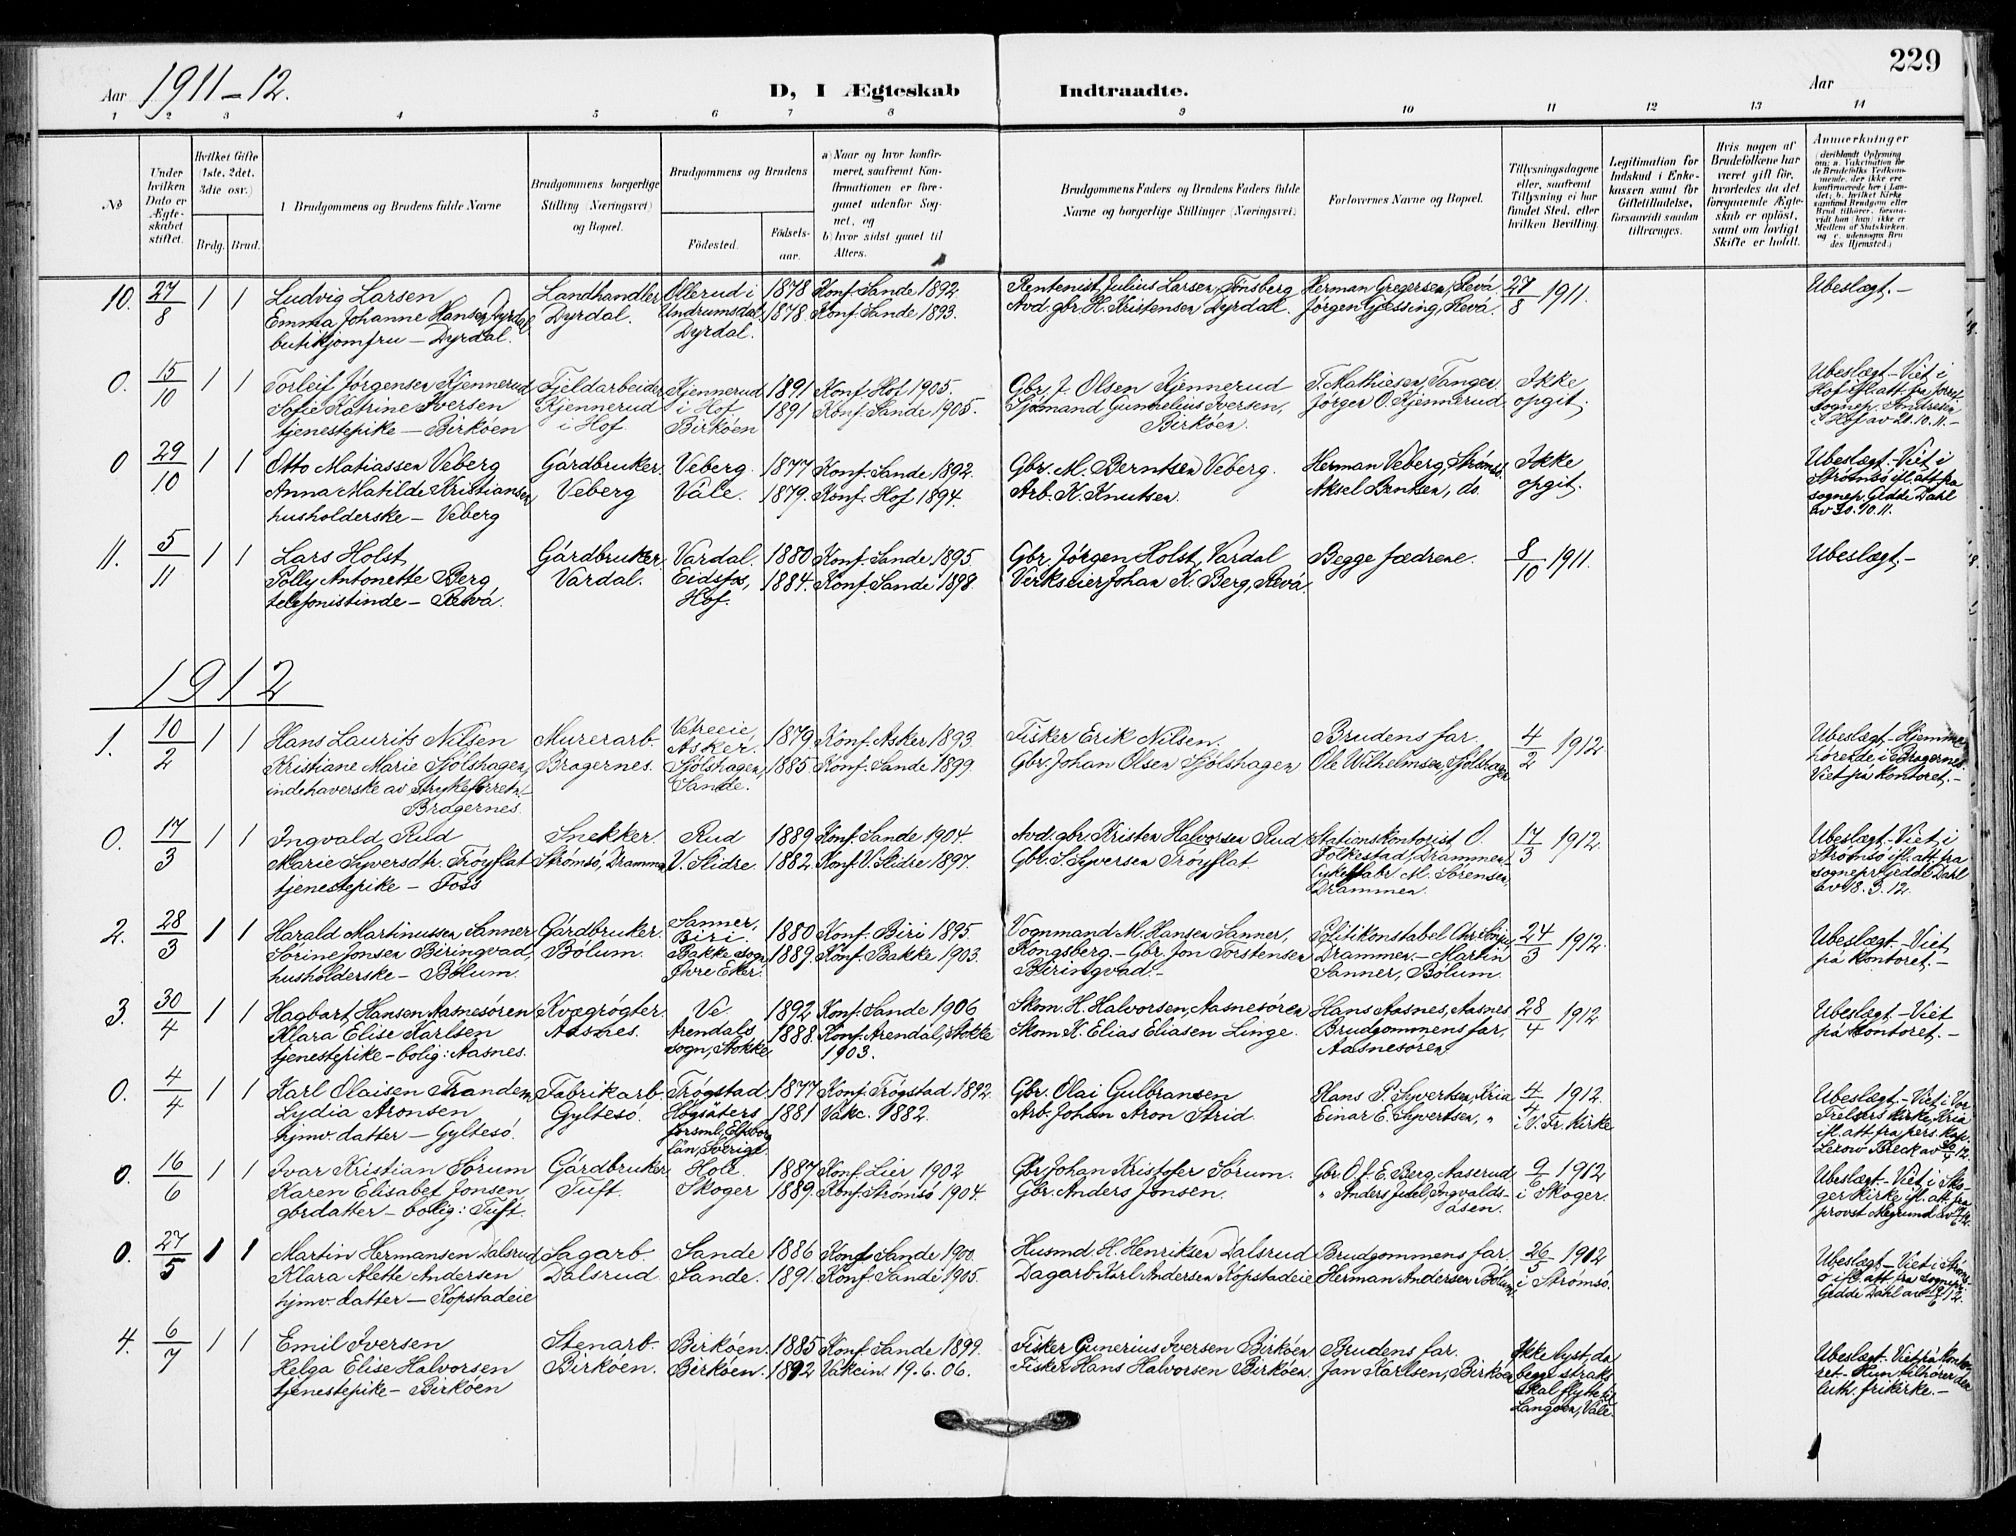 229
Aar 1911-12.
D, I Ægteskab Indtraadte.
Aar
1 2 3 4 5 6 7 8 9 10 11 12 13 14
No
Under hvilken Dato er Ægteskabet stiftet.
Hvilket Gifte (1ste, 2det, 3die osv.)
Brdg. Brud.
1. Brudgommens og Brudens fulde Navne
Brudgommens borgerlige Stilling (Næringsvei) og Bopæl.
Brudgommens og Brudens
Fødested. Fødselsaar.
a) Naar og hvor konfirmeret, saafremt Konfirmationen er foregaaet udenfor Sognet, og
b) hvor sidst gaaet til Alters.
Brudgommens Faders og Brudens Faders fulde Navne og borgerlige Stillinger (Næringsvei).
Forlovernes Navne og Bopæl.
Tillysningsdagene eller, saafremt Tillysning ei har fundet Sted, efter hvilken Bevilling.
Legitimation for Indskud i Enkekassen samt for Giftetilladelse, forsaavidt saadan tiltrænges.
Hvis nogen af Brudefolkene har været gift før, hvorledes da det foregaaende Ægteskab er opløst, samt om lovligt Skifte er holdt.
Anmerkninger
10. 27/8 1 1 Ludvig Larsen Landhandler Ollerud i 1878 Konf. Sande 1892 Rentenist Julius Larsen, Tønsberg Herman Gregersen, Revå 27/8 1911. Ubeslægt.-
Emma Johanne Hansen Dyrdal Dyrdal. Andrumsdal. 1878. Konf. Sande 1893. Avd. gbr. H. Kristensen Dyrdal. Jørgen Gjessing, Revå.
butikjomfru - Dyrdal. Dyrdal.
0. 15/10 1 1 Torleif Jørgensen Kjennerud Fjeldarbeider Kjennerud 1891 Konf. Hof 1905. Gbr. J. Olsen Kjennerud T. Mathiesen, Tangen Ikke Ubeslægt.- Viet i
Sofie Katrine Iversen Kjennerud i Hof 1891 Konf. Sande 1905. Sjømand Gunnelius Iversen, Jørgen O. Kjennerud opgit. Hof ifl. att. fra
tjenestepike - Birkøen i Hof. Birkøen Birkøen. sognep. i Hof av 20.10.11.-
0 29/10 1 1 Otto Matiassen Veberg Gårdbruker. Veberg. 1877 Konf. Sande 1892. Gbr. M. Berntsen Veberg. Herman Veberg, Strømsø. Ikke Ubeslægt.- Viet i
Anna Matilde Kristiansen Veberg Våle. 1879. Konf. Hof 1894. Arb. K. Knutsen. Aksel Berntsen, ds. opgit. Strømsø ifl. att. fra
husholderske - Veberg sognep. Gedde Dahl av 30.10.11.
11. 5/11 1 1 Lars Holst Gårdbruker Vardal. 1880 Konf. Sande 1895. Gbr. Jørgen Holst, Vardal Begge fædrene. 8/10 1911. Ubeslægt.-
Polly Antonette Berg Vardal. Eidsfos, 1884. Konf. Sande 1898. Verkseier Johan K. Berg, Revå.
telefonistinde - Revå. Hof.
1912
1. 10/2 1 1 Hans Laurits Nilsen Murerarb. Vetreeie, 1879 Konf. Asker 1893. Fisker Erik Nilsen. Brudens far. 4/2 1912 Ubeslægt. Hjemme-
Kristiane Marie Sjølshagen, Bragernes. Asker. Sjølshagen, 1885 Konf. Sande 1899. Gbr. Johan Olsen Sjølshagen Ole Wilhelmsen, Sjølshagen hørende i Bragernes.
indehaverske av strykeforretn.- Sande. Viet på kontoret.-
Bragernes.
0. 17/3 1 1 Ingvald Rud Snekker. Rud 1889 Konf. Sande 1904. Avd. gbr. Kristen Halvorsen Rud Stationskontorist O. 17/3 1912. Ubeslægt.- Viet i
Marie Syversdtr. Trøyflat Strømsø, Drammen V. Slidre. 1882 Konf. V. Slidre 1897. Gbr. S. Syversen Trøyflat. Folkestad, Drammen, Strømsø ifl. att. fra
tjenestepike - Foss M. Sørensen, Drammen. sognepr. Gedde Dahl av 18.3.12.
2. 28/3 1 1 Harald Martinussen Sanner Gårdbruker. Sanner, Biri. 1880 Konf. Biri 1895. Vognmand M. Hansen Sanner, Politikonstabel 24/3 1912. Ubeslægt.- Viet
Sørine Jonsen Biringvad, Bølum. Bakke sogn 1889. Konf. Bakke 1903. Kongsberg.- Gbr. Jon Torstensen Drammen.- Martin på kontoret.-
husholderske - Bølum. Øvre Eker. Biringvad.- Sanner, Bølum.
3. 30/4 1 1 Hagbart Hansen Aasnesøren Kvægrøgter. Ve 1892 Konf. Sande 1906 Skom. H. Halvorsen, Aasnesøren Hans Aasnes, Aasnes 28/4 1912. Ubeslægt.- Viet
Klara Elise Karlsen Aasnes. Arendals 1888. Konf. Arendal, Stokke Skom. K. Elias Eliasen Linge. Brudgommens far, på kontoret.-
tjenestepike - bolig: Aasnes. sogn, Stokke 1903. Aasnesøren
0. 4/4 1 1 Karl Olaisen Tranden Fabrikarb. Trøgstad 1877 Konf. Trøgstad 1892. Gbr. Olai Gulbransen Hans P. Syvertsen, Kria 4/4 1912. Ubeslægt.- Viet i Vor
Lydia Aronsen Gyltesø. Høgsäters 1881 Vakc. 1882. Arb. Johan Aron Strid Einar E. Syvertsen, " i V. Fr. kirke Frelsers kirke, Kria
hjmv. datter - Gyltesø. församl. Elfsborg län, Sverige ifl. att. fra pers. kap. Breck av 4/4 12.
0. 16/6 1 1 Ivar Kristian Sørum Gårdbruker Hole. 1887 Konf. Lier 1902 Gbr. Johan Kristofer Sørum. Gbr. O. f. E. Berg, Aaserud 9/6 1912 Ubeslægt.- Viet i Sko-
Karen Elisabet Jonsen Tuft. Skoger 1889. Konf. Strømsø 1904. Gbr. Anders Jonsen. " Anders Juel, Ingvalds- i Skoger. ger kirke ifl. att. fra
gbrdatter - bolig: Tuft. åsen. provst
0. 27/5 1 1 Martin Hermansen Dalsrud Sagarb. Sande 1886 Konf. Sande 1900. Husmd. H. Henriksen Dalsrud Brudgommens far 26/5 1912 Ubeslægt.- Viet i Strøms-
Klara Alette Andersen Dalsrud. Sande. 1891. Konf. Sande 1905. Dagarb. Karl Andersen Kopstadeie Herman Andersen Bølum i Strømsø. ø ifl. att. fra sognepr.
hjmv. datter - Kopstadeie Gedde Dahl
4. 6/7 1 1 Emil Iversen Stenarb. Birkøen. 1885 Konf. Sande 1899. Fisker Gunerius Iversen Birkøen Brudens far. Ikke lyst, da Ubeslægt.- Viet på konto-
Helga Elise Halvorsen Birkøen. Birkøen. 1892 Vakcin. 19.6.06. Fisker Hans Halvorsen Birkøen. Jan Karlsen, Birkøen begge straks ret.- Hun tilhører den
tjenestepike - Birkøen skal flytte til luth. frikirke.-
Langøen, Våle.